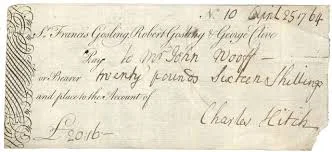 No. 10 April 25 1764
Sr. Francis Gosling, Robert Gosling & George Clive
Pay to Mr. John Wooff
or Bearer Twenty pounds Sixteen Shillings
and place to the Account of
Charles Hitch
£20:16-